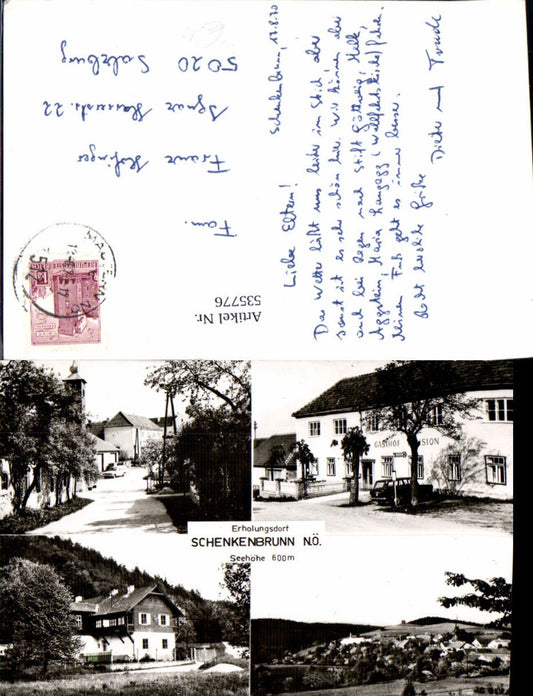 Schenkenbrunn, 17.8.70
Liebe Eltern!
Das Wetter läßt uns leider im Stich aber
sonst ist es sehr schön hier. Wir können aber
auch bei Regen nach Stift Göttweig, Melk,
Aggstein, Maria Langegg (Wallfahrtskirche) fahren.
Meinen Fuß geht es immer besser.
Recht herzliche Grüße
Dieter und Traude
Fam.
Franz
Ignaz 22
5020 Salzburg
Artikel Nr.
535776
GASTHOF PENSION
Erholungsdorf
SCHENKENBRUNN N.Ö.
Seehöhe 600m